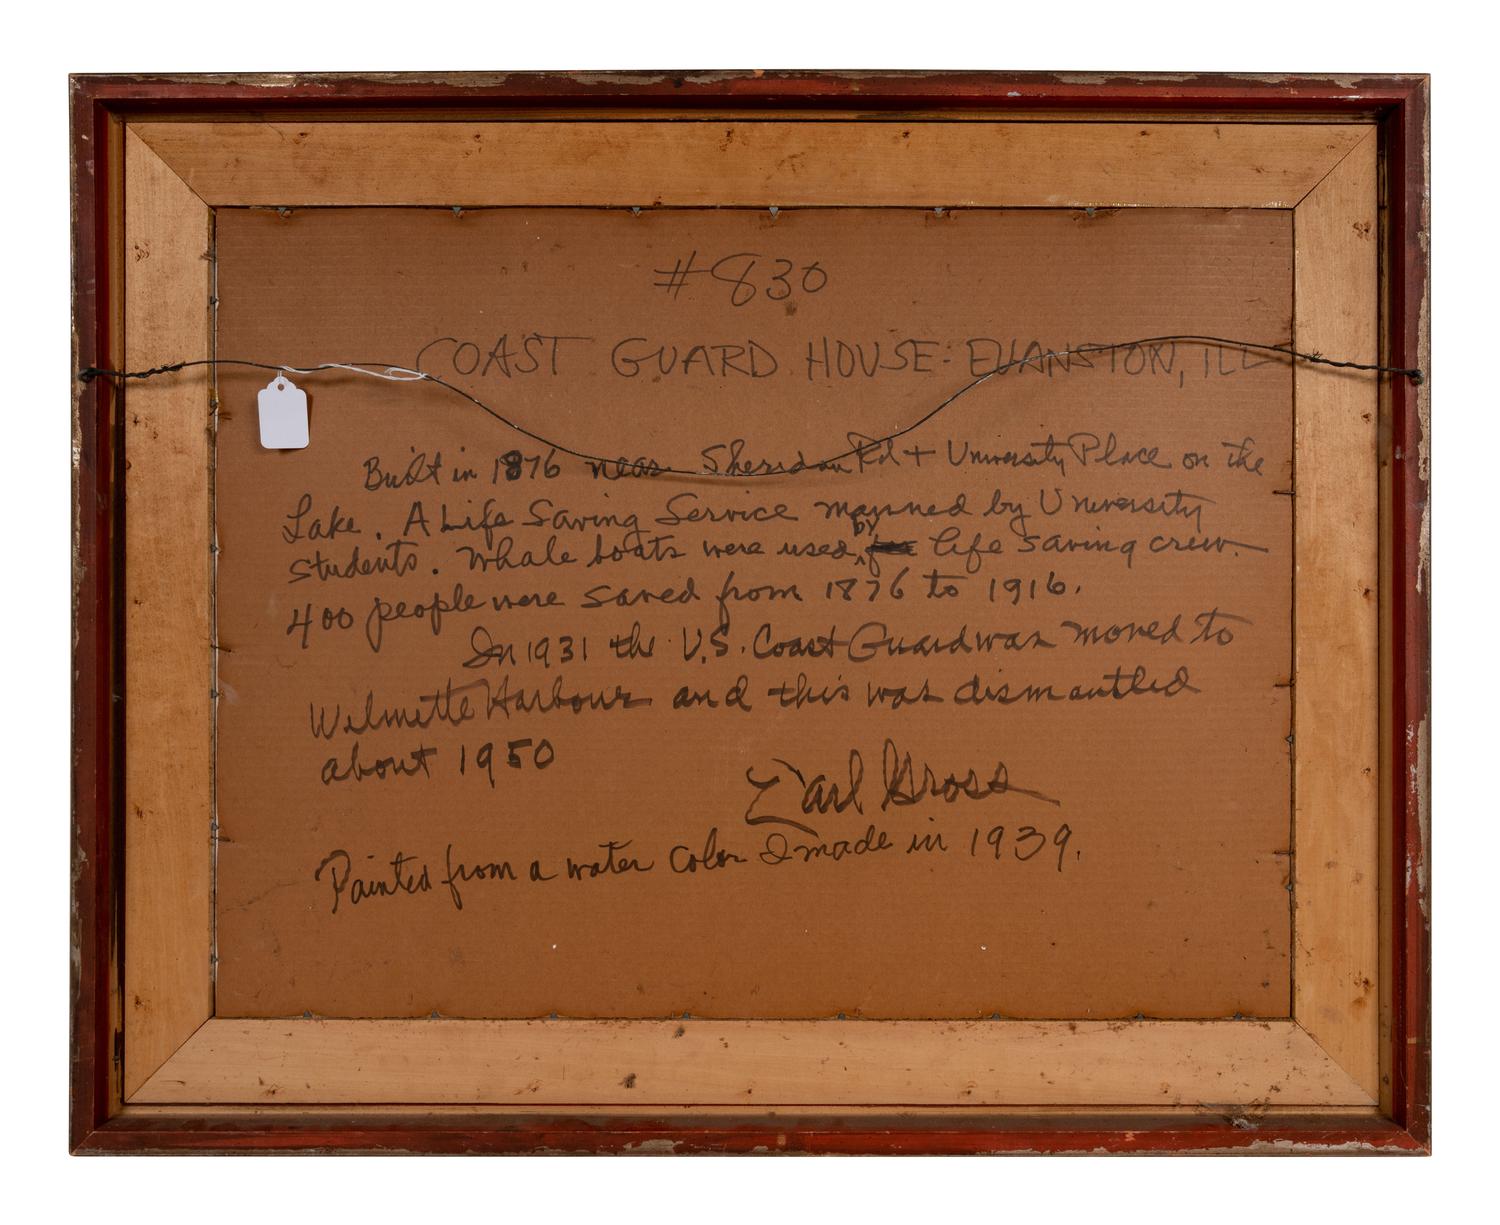 #830
COAST GUARD HOUSE- EVANSTON, ILL
Built in 1876 near Sheridan Rd + University Place on the
Lake. A Life Saving Service manned by University
students. Whale boats were used by life saving crew.
400 people were saved from 1876 to 1916.
In 1931 the U.S. Coast Guard was moved to
Wilmette Harbour and this was dismantled
about 1950
Earl Gross
Painted from a water color I made in 1939.